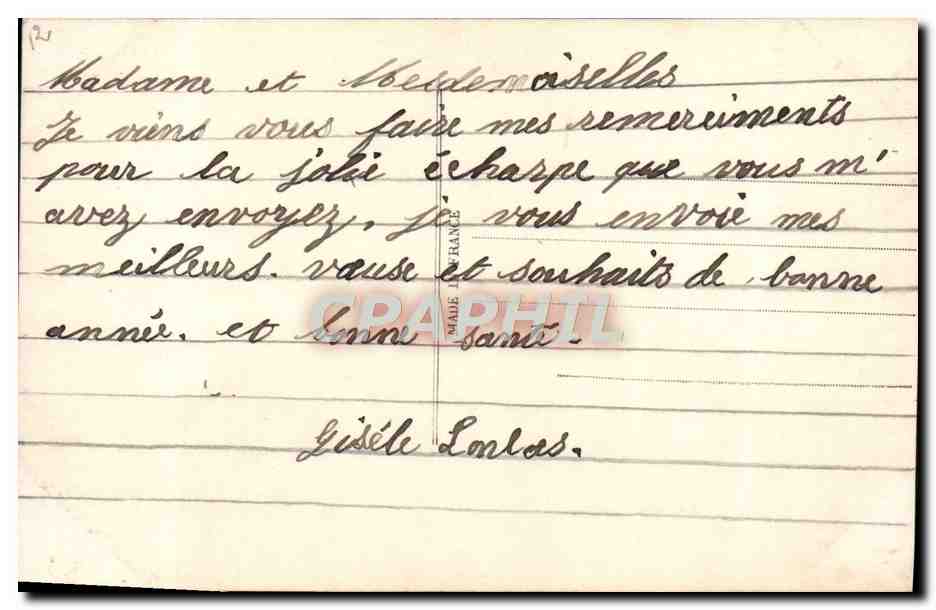 12
Madame et Mesdemoiselles
Je viens vous faire mes remerciments
pour la jolie écharpe que vous m'
avez envoyez, je vous envoie mes
meilleurs. vause et souhaits de bonne
année. et bonne santé.
Gisèle
MADE IN FRANCE
CPAPHIL